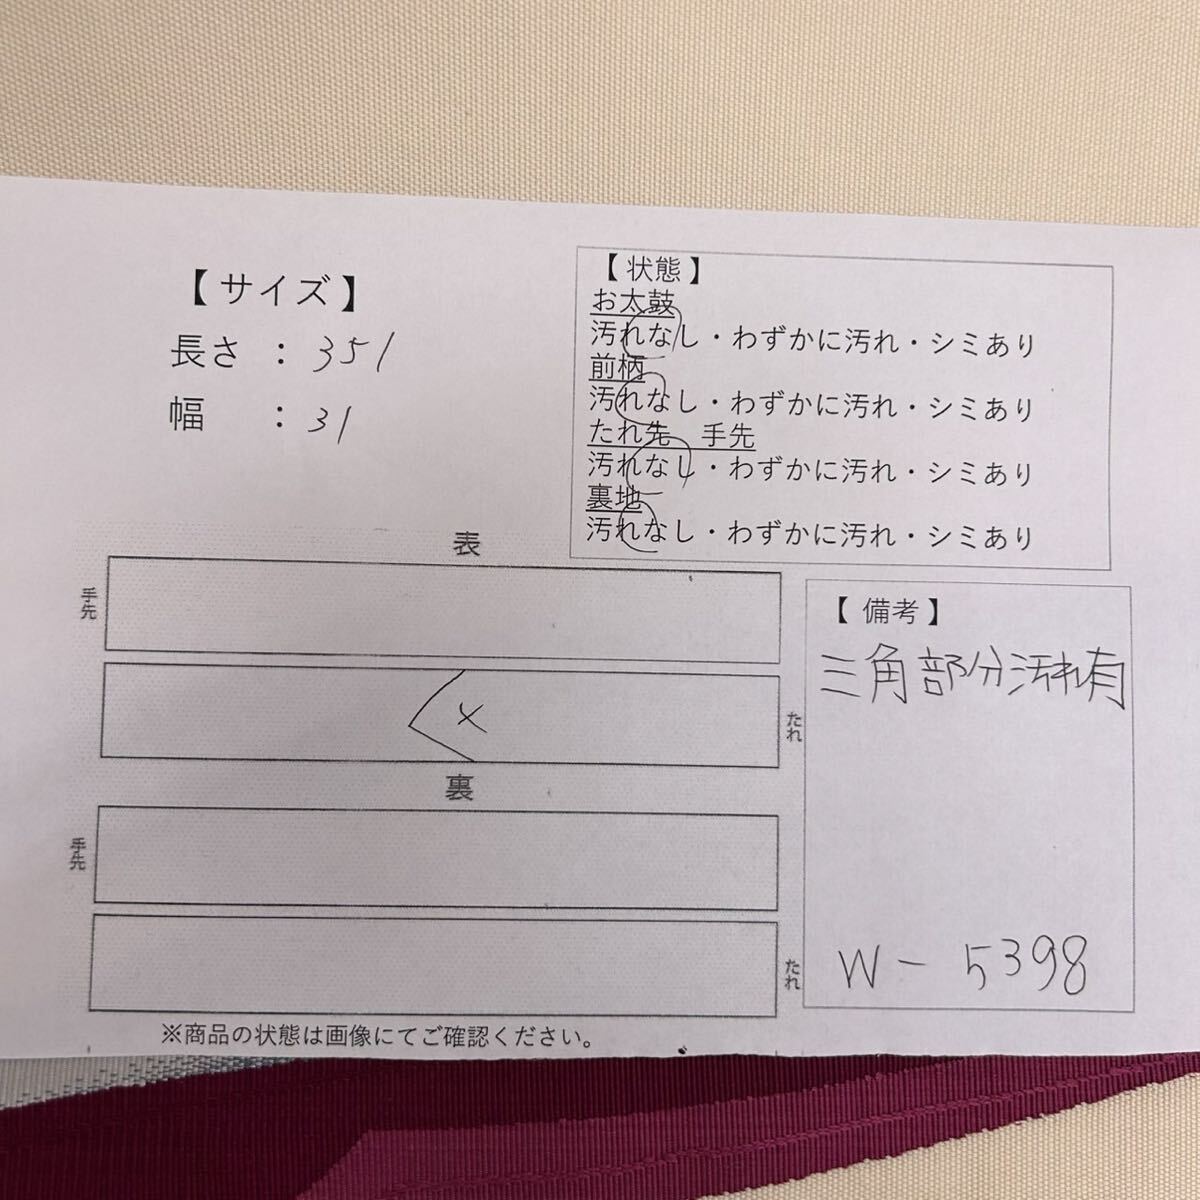 【サイズ】
長さ ： 351
幅 ： 31
【状態】
お太鼓
汚れなし・わずかに汚れ・シミあり
前柄
汚れなし・わずかに汚れ・シミあり
たれ先 手先
汚れなし・わずかに汚れ・シミあり
裏地
汚れなし・わずかに汚れ・シミあり
表
手先
×
たれ
裏
手先
たれ
【備考】
三角部分汚れ有
W－5398
※商品の状態は画像にてご確認ください。